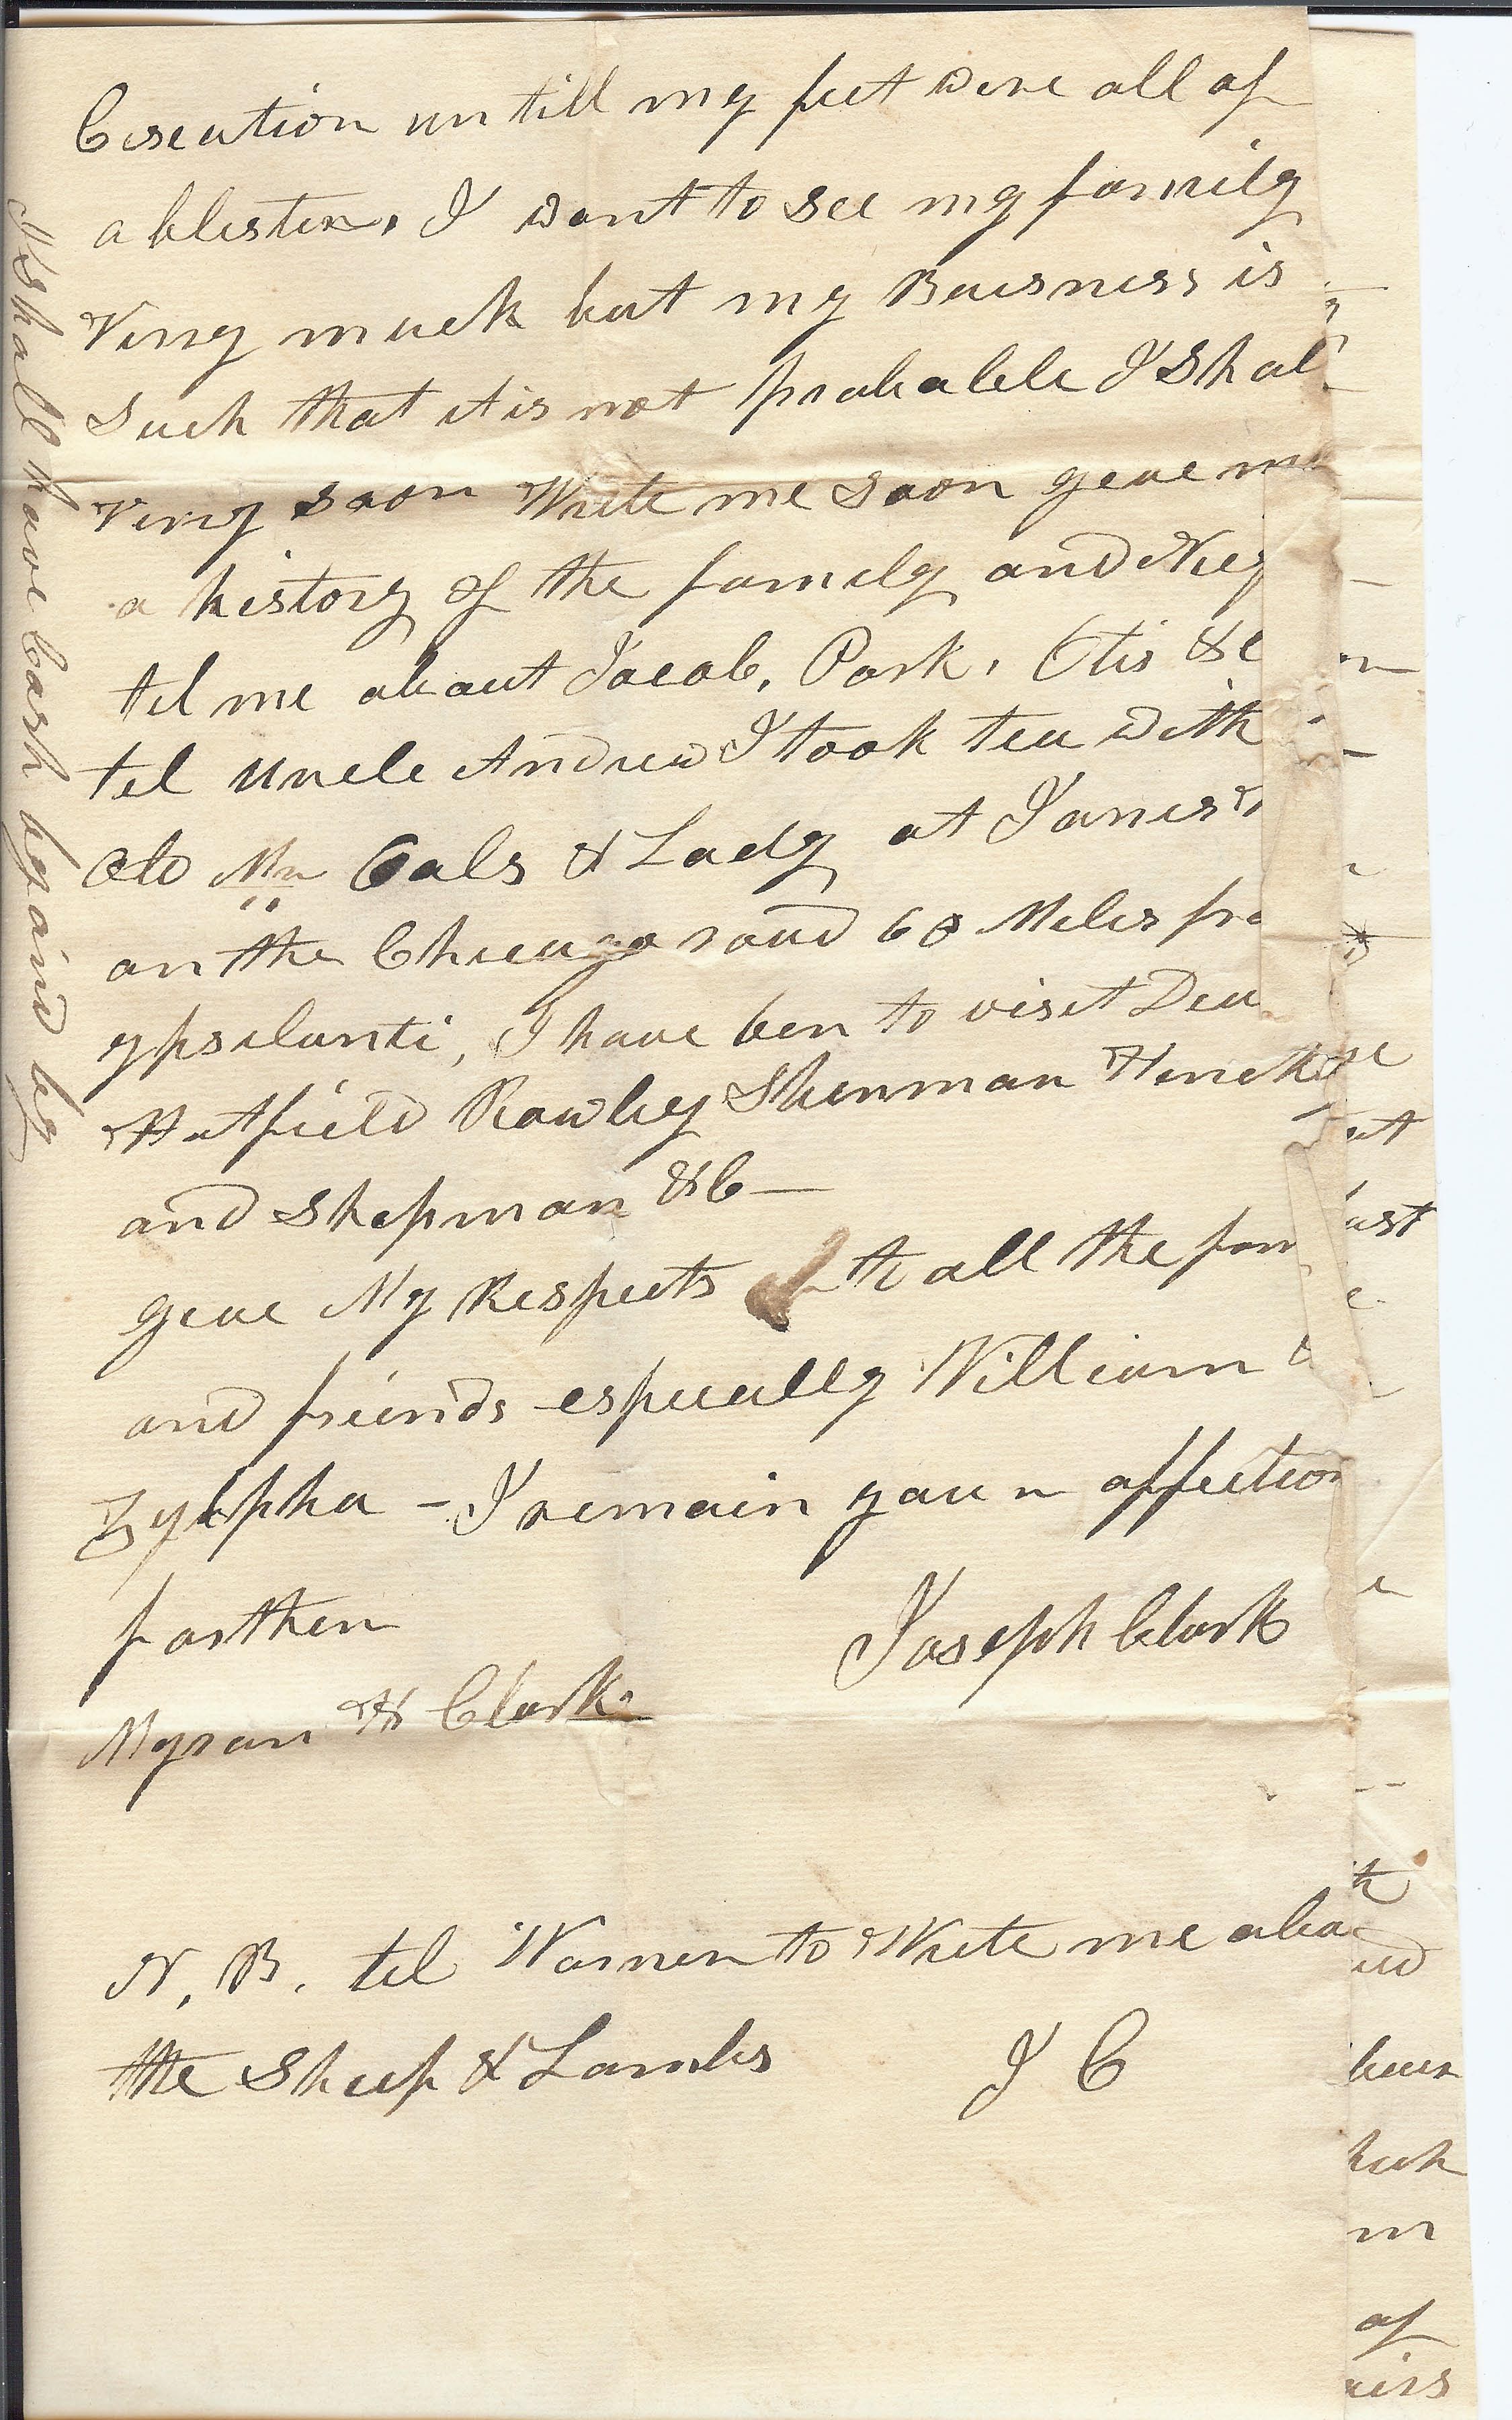 untill my feet were all of
a blister, I want to see my family
Verry much but my Buisness is
Such that it is not probable I Shal
Verry soon Write me soon geve m
a history of the family and
tel me about Jacob, Park, Otis &c
tel uncle Andrew I took tea with
Mr & Lady at
on the Chicago road 60 Miles fro
ypsilanti, I have ben to visit
Hatfield Rowley Shurman
and Shepman &C—
geve My Respects to all the fam
and friends especually William &
Zylpha - I remain your affection
farther
Joseph Clark
Myron H Clark
N, B. tel Warren to Write me abo
the Sheep & Lambs
J C
I Shall have Cash by and by
ut
ast
of